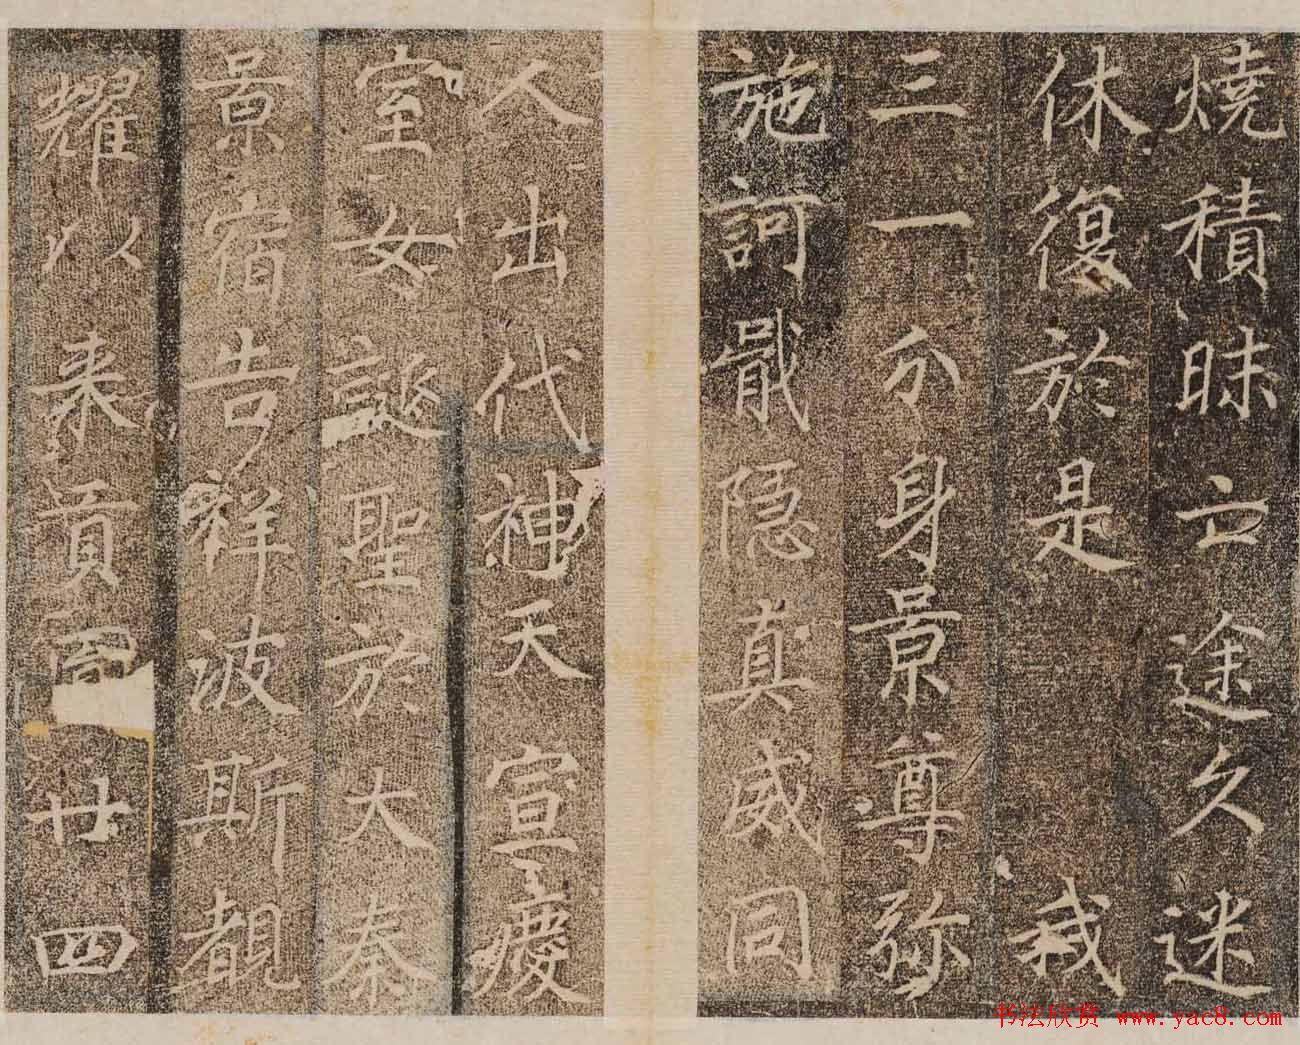 燒積昧亡途久迷
休復於是 我
三一分身景尊弥
施訶戢隐真威同
人出代神天宣慶
室女誕聖於大秦
景宿告祥波斯覩
耀以来貢圓廿四
书法欣赏 www.yac8.com